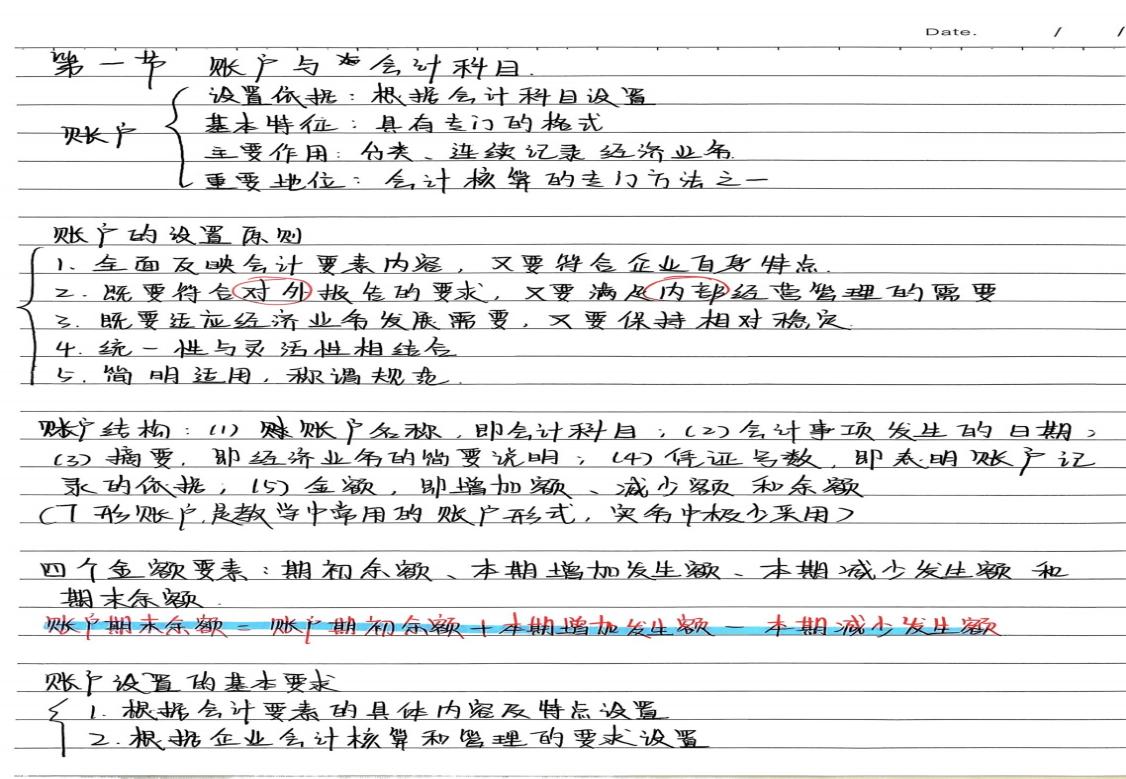 Date. / /
第一节 账户与会计科目.
设置依据：根据会计科目设置
基本特征：具有专门的格式
账户
主要作用：分类、连续记录经济业务
重要地位：会计核算的专门方法之一
账户的设置原则
1、全面反映会计要素内容，又要符合企业自身特点.
2. 既要符合对外报告的要求，又要满足内部经营管理的需要
3. 既要适应经济业务发展需要，又要保持相对稳定.
4. 统一性与灵活性相结合
5. 简明适用，称谓规范.
账户结构：(1) 账户名称，即会计科目；(2) 会计事项发生的日期；
(3) 摘要，即经济业务的简要说明；(4) 凭证号数，即表明账户记
录的依据；(5) 金额，即增加额、减少额和余额
(T形账户,是教学中常用的账户形式，实务中极少采用)
四个金额要素：期初余额、本期增加发生额、本期减少发生额和
期末余额.
账户期末余额=账户期初余额+本期增加发生额-本期减少发生额
账户设置的基本要求
1. 根据会计要素的具体内容及特点设置
2. 根据企业会计核算和管理的要求设置